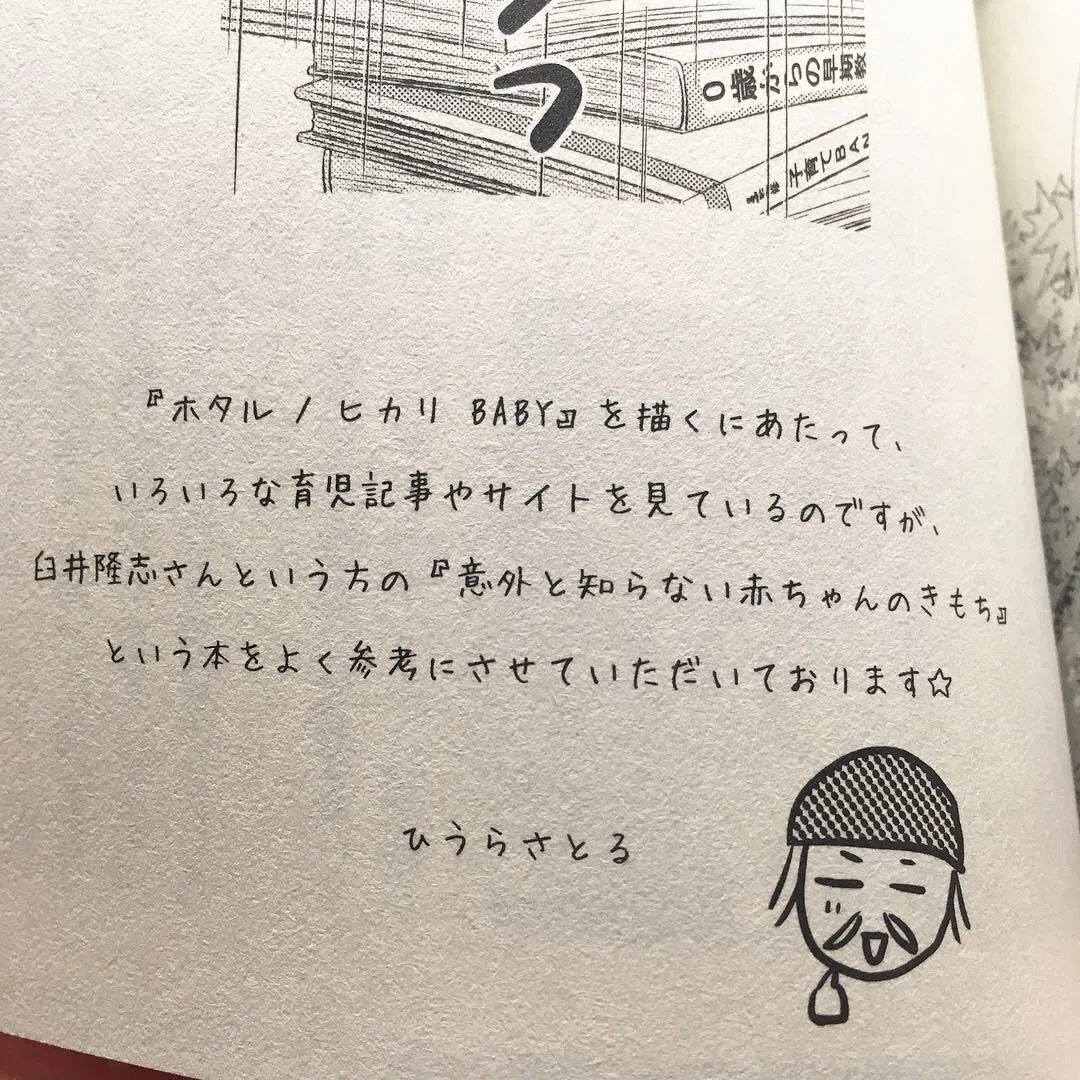 っ
0歳からの早期教
子育てBAN
『ホタルノヒカリ BABY』を描くにあたって、
いろいろな育児記事やサイトを見ているのですが、
臼井隆志さんという方の『意外と知らない赤ちゃんのきもち』
という本をよく参考にさせていただいております☆
ひうらさとる